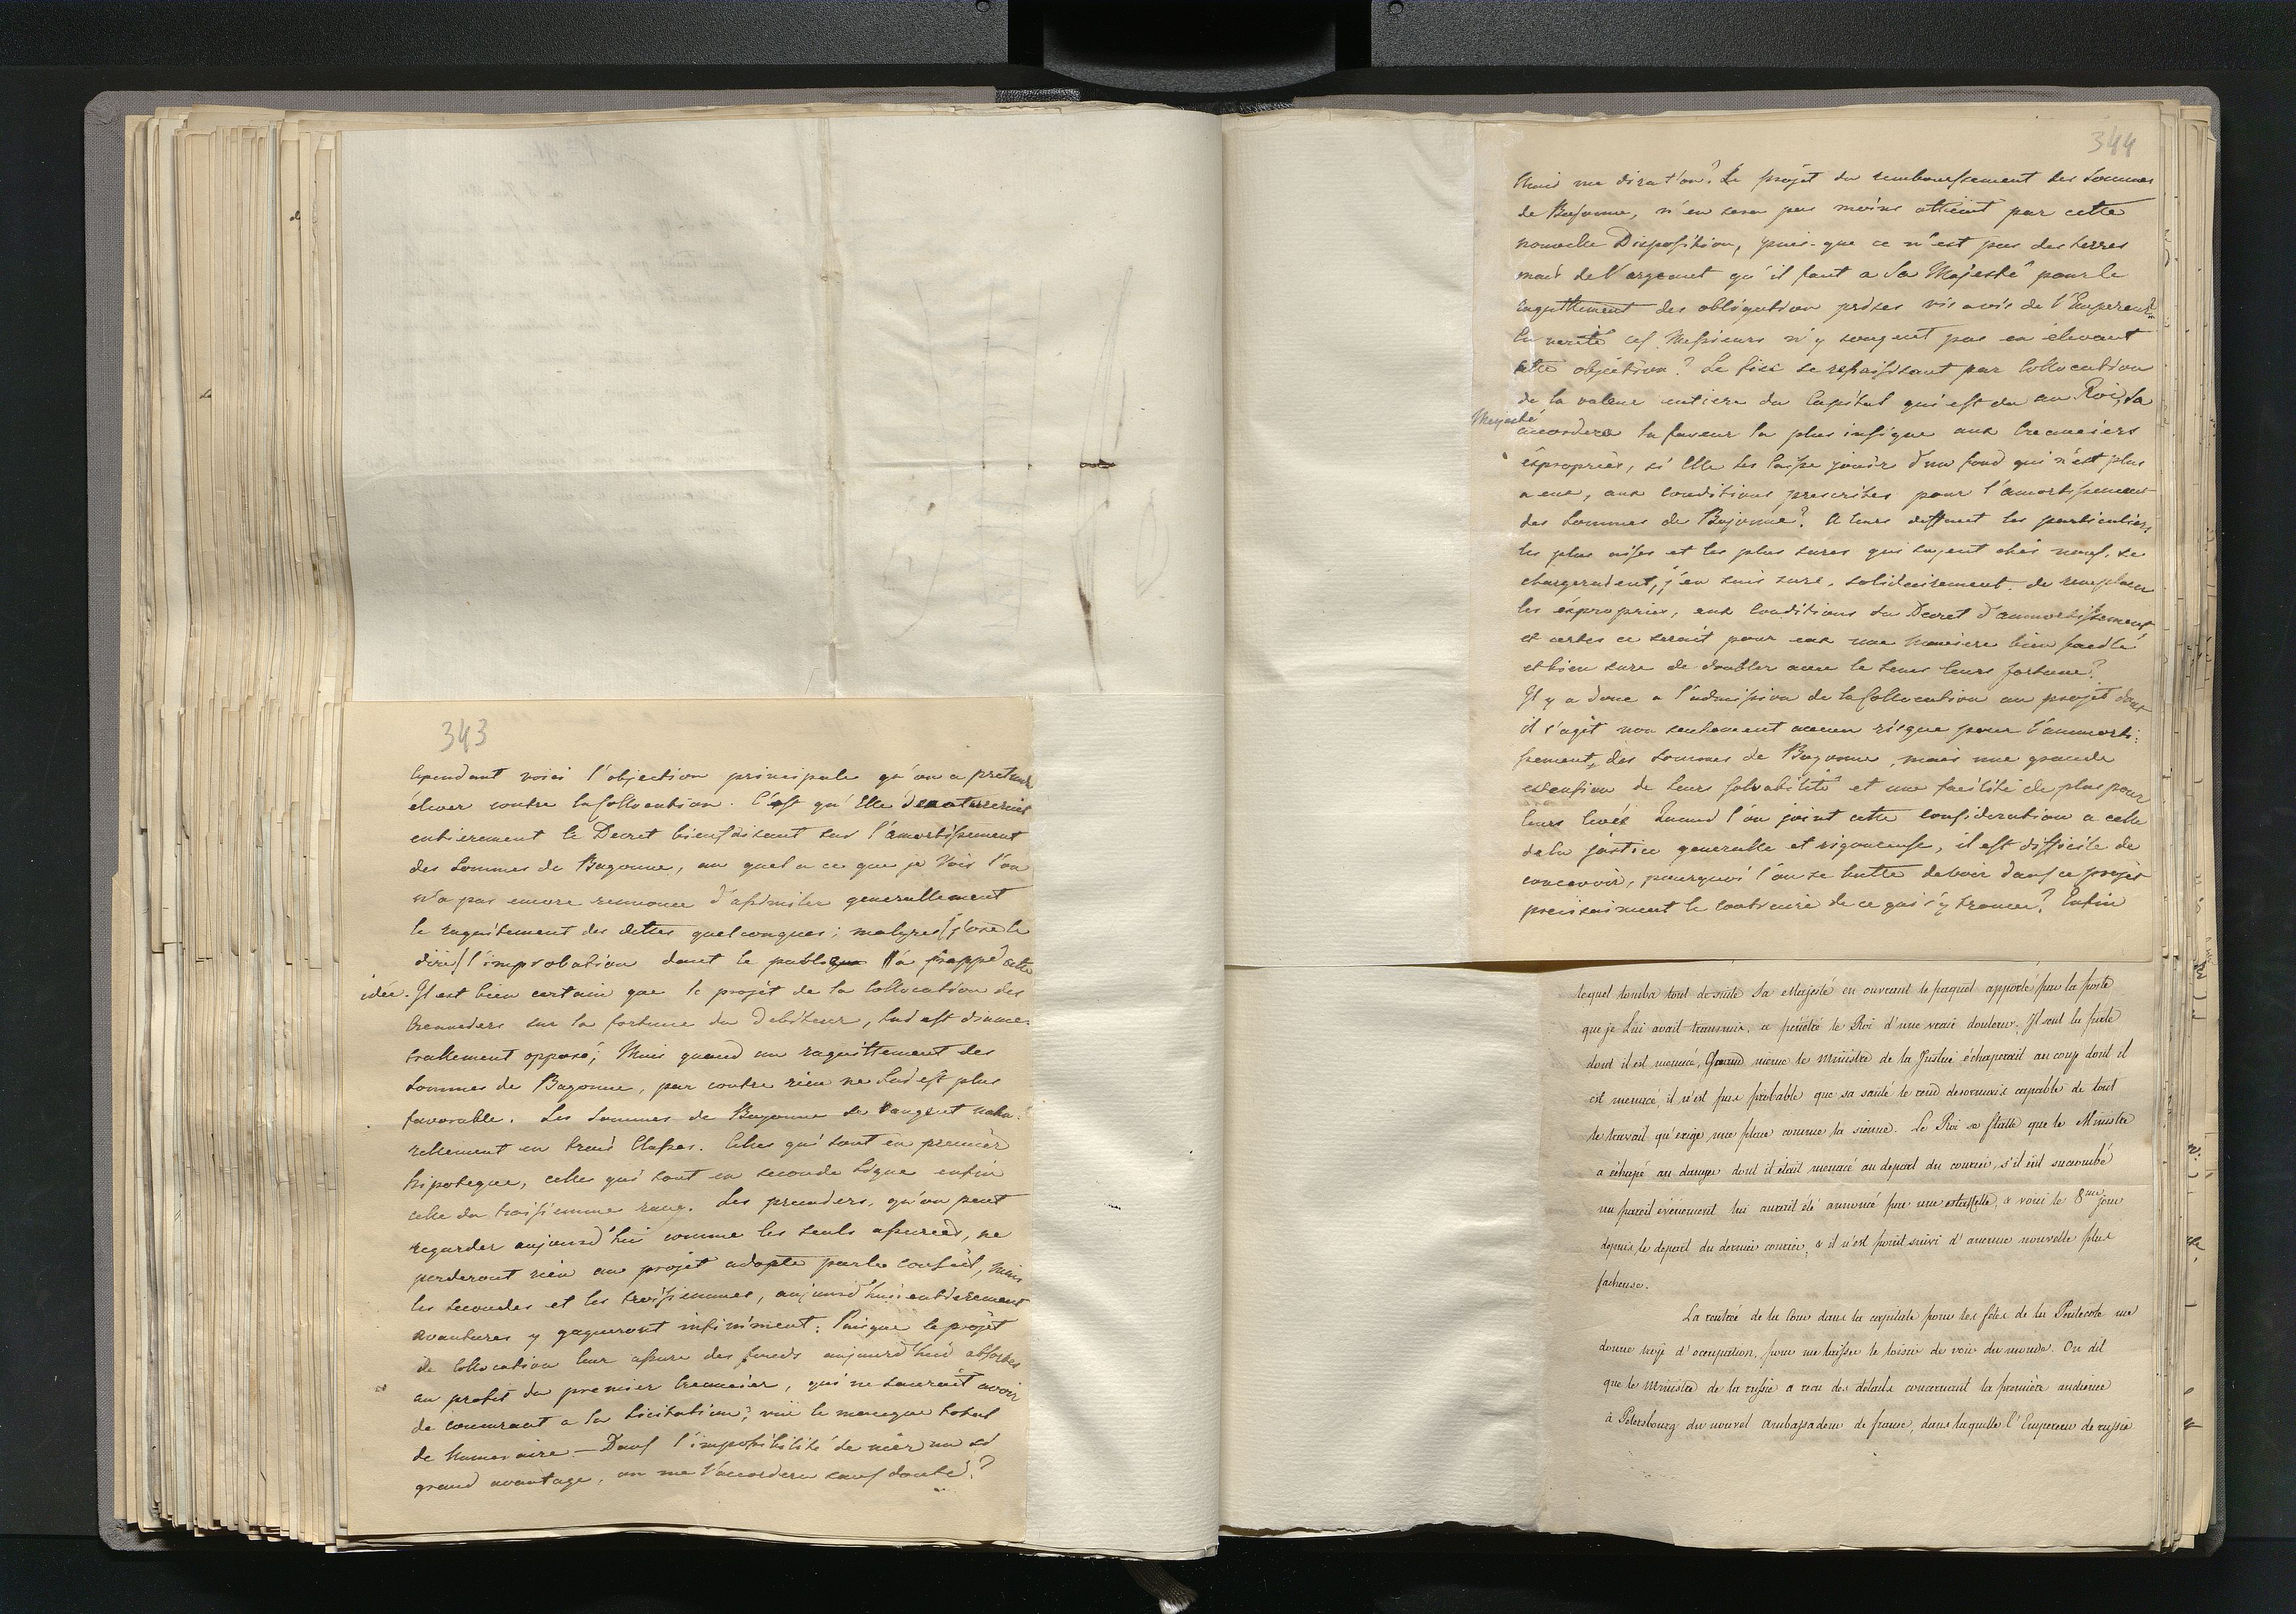 343
Cependant voici l'objection principale qu'on a pretendu
élever contre la Collocation. C'est qu'Elle denaturerait
entierement le Decret bienfaisant sur l'amortissement
des sommes de Bayonne, au quel a ce que je Vois l'on
n'a pas encore renoncé d'assimiler generallement
le raquitement des dettes quelconques; malgres / j'ose le
dire / l'improbation dont le public a frappé cette
idée. Il est bien certain que le projèt de la Collocation des
Creanciers sur la fortune du Debiteur, lui est diame-
trallement opposé; Mais quand au raquittement des
sommes de Bayonne, par contre rien ne lui est plus
favorable. Les sommes de Bayonne se rangent natu-
rellement en trois Classes. Celles qui sont en première
hipoteque, celles qui sont en seconde ligne enfin
celle du troisiemme rang. Les premiers, qu'on peut
regarder aujourd'hui comme les seuls assureés, ne
perderont rien au projèt adopté par le conseil, mais
les secondes et les troisiemmes, aujourd'hui entierement
avantures y gagneront infiniment: Puisque le projèt
de Collocation leur assure des fonds aujourd'hui absorbés
au profit du premier Creancier, qui ne saurait avoir
de concurrant a la licitation; vuë le manque total
de Numeraire — Dans l'impossibilité de nièr un si
grand avantage, on me l'accordera sans doute?
344
Mais me dirat'on? Le projèt du remboursement des sommes
de Bajonne, n'en sera pas moins atteint par cette
nouvelle Disposition, puis-que ce n'est pas des terres
mais de l'argeant qu'il faut a Sa Majesté pour le
raquittement des obligation prises vis avis de l'Empereur?
En verité ces Messieurs n'y songent pas en élevant
cette objéction? Le fisc se repaissant par Collocation
de la valeur entiere du Capital qui est du au Roi, Sa
Majesté
accordera la faveur la plus insigne aux Creanciers
éxpropriés, si Elle les laisse jouir d'un fond qui n'est plus
a eux, aux conditions prescrites pour l'amortissement
des sommes de Bajonne? A leurs deffaut les particuliers
les plus aisés et les plus sures qui soyent chés nous, se
chargeraient, j'en suis sure, solidairement de remplacer
les éxpropriés, aux Conditions du Decret d'ammortissement
et certes ce serait pour eux une Maniere bien facile
et bien sure de doubler avec le tems leurs fortune?
Il y a donc a l'admission de la Collocation au projèt dont
il s'agit non seulement aucun risque pour l'ammorti-
ssement, des sommes de Bayonne, mais une grande
extension de leurs solvabilité et une facilité de plus pour
leurs Quand l'on joint cette consideration a celle
de la justice generalle et rigoureuse, il est difficile de
concevoir, pourquoi l'on se butte de voir dans ce projèt
precisaiment le contraire de ce qui s'y trouve? Enfin
lequel tomba tout de suite Sa Majesté en ouvrant le paquet apporté par la poste
que je Lui avait transmis, a pénétré le Roi d'une vraie douleur. Il sent la perte
dont il est menacé, Quand même le Ministre de la Justice échaperait au coup dont il
est menacé, il n'est pas probable que sa santé le rend desormais capable de tout
le travail qu'exige une place comme la sienne. Le Roi se flatte que le Ministre
a échapé au danger dont il était menacé au depart du courier, s'il eût succombé
un pareil évènement lui aurait été annoncé par une estaffette, & voici le 8me jour
depuis le depart du dernier courier, & il n'est point suivi d'aucune nouvelle plus
facheuse.
La rentrée de la Cour dans la capitale pour les fêtes de la Pentecote me
donne trop d'occupation, pour me laisser le loisir de voir du monde. On dit
que le Ministre de la russie a recu des détails concernant la première audience
à Petersbourg du nouvel ambassadeur de france, dans laquelle l'Empereur de russie